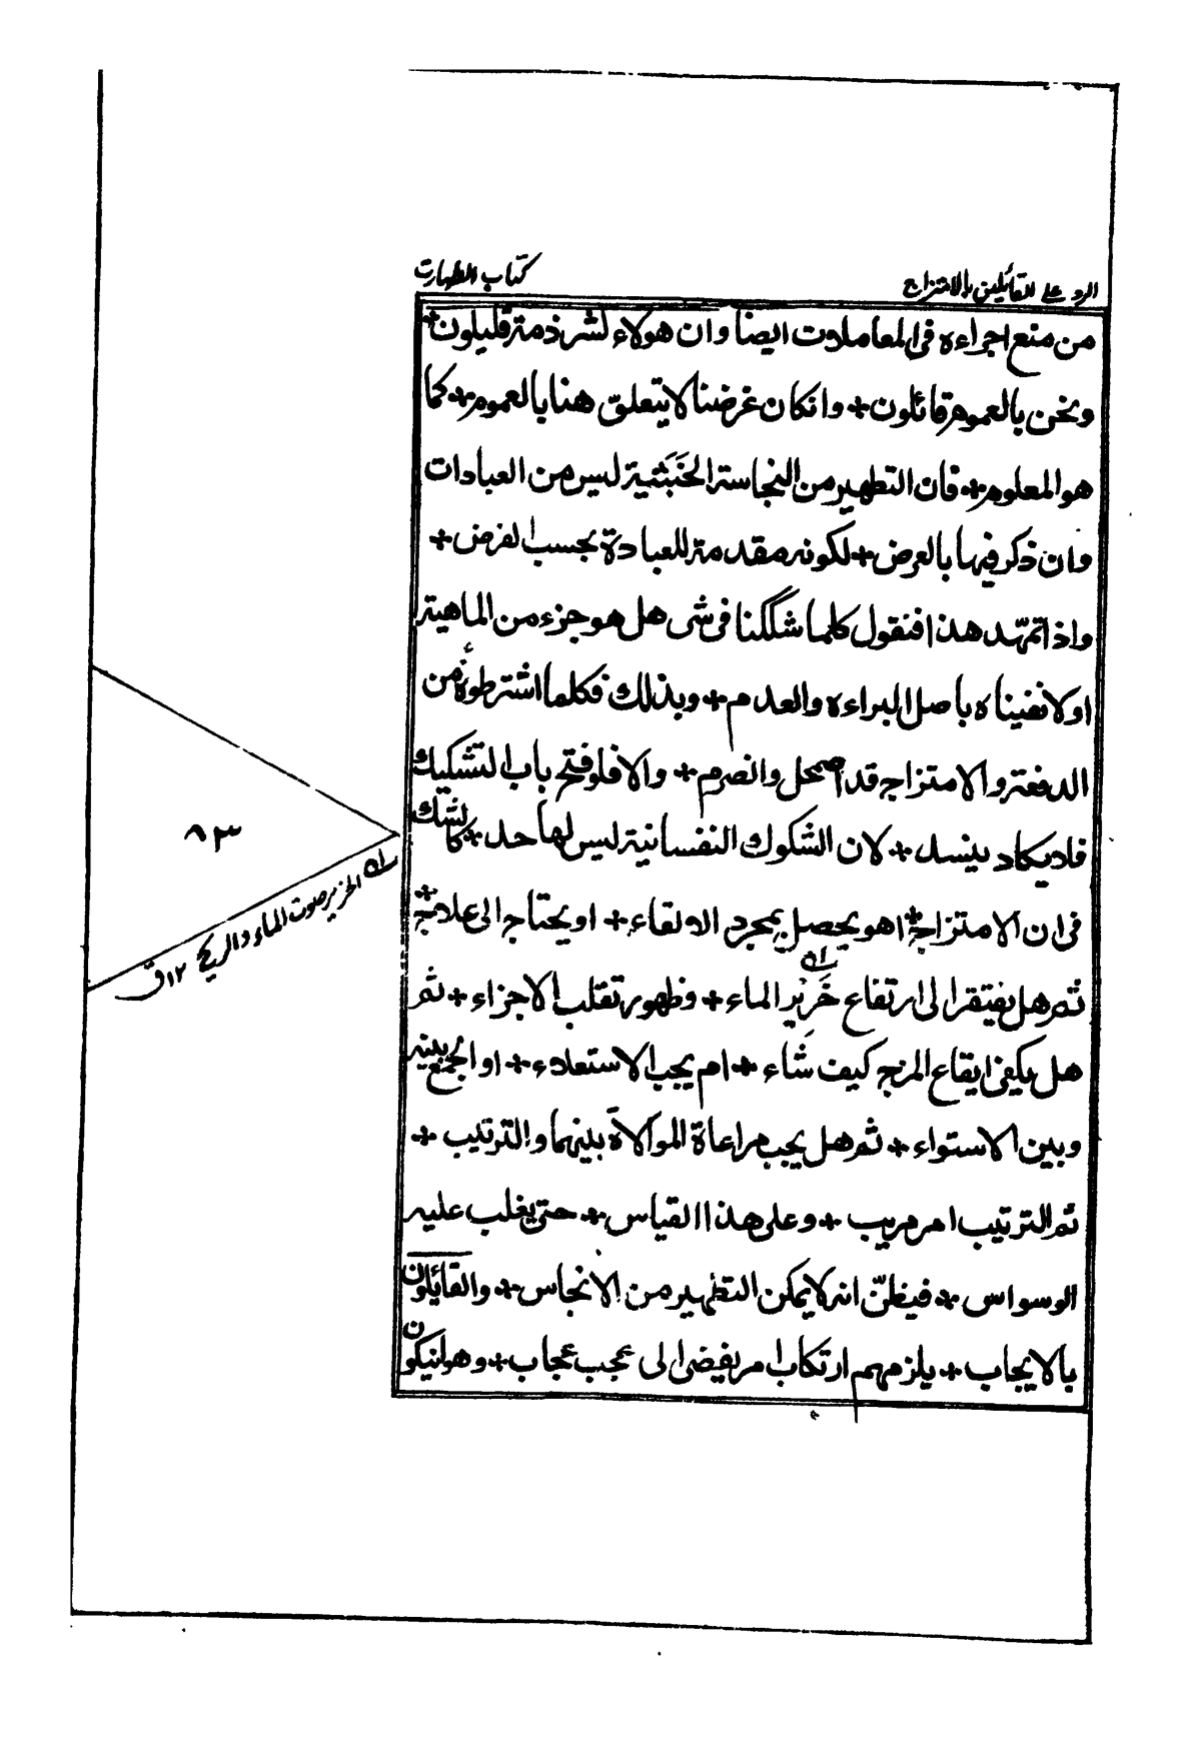 الرد علی القائلین بالامتزاج
کتاب الطهارت
من منع اجراءه فی المعاملات ایضا وان هولاء لشرذمة قلیلون +
ونحن بالعموم قائلون + وانکان غرضنا لایتعلق هنا بالعموم + کما
هو المعلوم + فان التطهیر من النجاسة الخَبَثیة لیس من العبادات
وان ذکر فیها بالعرض + لکونه مقدمة للعبادة بحسب الفرض +
واذا تمهّد هذا فنقول کلما شککنا فی شی هل هو جزء من الماهیة
اولا نفیناه باصل البراءه والعدم + وبذلک فکلما اشترطوه من
الدفعة والامتزاج قد اضمحل وانصرم + والا فلو فتح باب التشکیک
فلا یکاد ینسد + لان الشکوک النفسانیة لیس لها حد + کالشک
فی ان الامتزاج + اهو یحصل بمجرد الالقاء + او یحتاج الی علامة +
ثم هل یفتقر الی ارتفاع خَرِیر الماء + وظهور تقلب الاجزاء + ثم
هل یکفی ایقاع المزج کیف شاء + ام یجب الاستعلاء + او الجمع بینه
وبین الاستواء + ثم هل یجب مراعاة الموالاة بینهما والترتیب +
ثم الترتیب امر مریب + وعلی هذا القیاس + حتی یغلب علیه
الوسواس + فیظنّ انه لایمکن التطهیر من الانجاس + والقائلون
بالایجاب + یلزمهم ارتکاب امر یفضی الی عجب عجاب + وهو انیکون
۸۳
له الخریر صوت الماء والریح ۱۲ ق